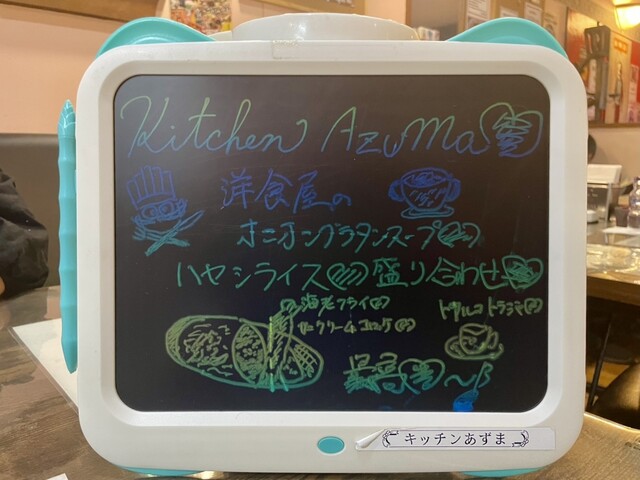 Kitchen AzuMa
洋食屋の
オニオングラタンスープ
ハヤシライス 盛り合わせ
海老フライ
クリームコロッケ
トルコ
最高 〜
キッチンあずま